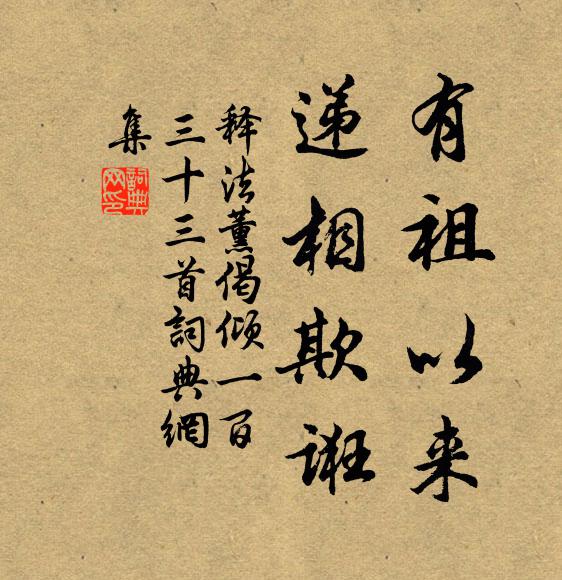 有祖以来
递相欺诳
释法薰偈倾一百
三十三首詞典網
集
詞典
网印